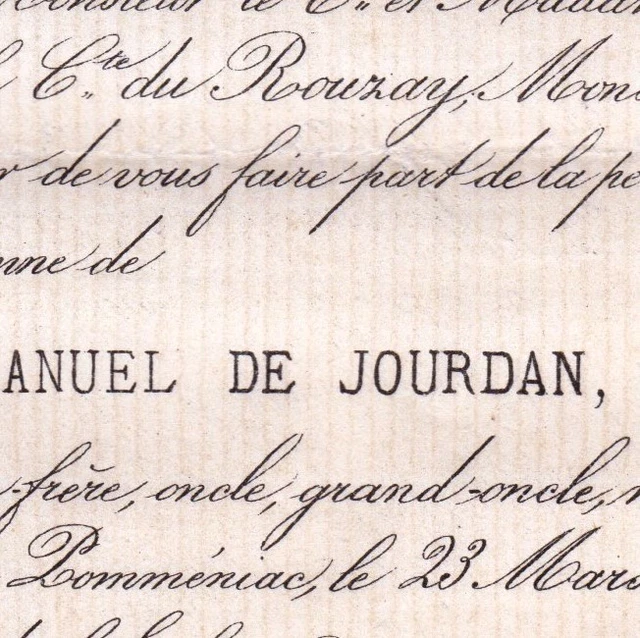 et Madame
Cte du Rouzay, Mons
de vous faire part de la pe
nne de
ANUEL DE JOURDAN,
frère, oncle, grand-oncle,
Pomméniac, le 23 Mars